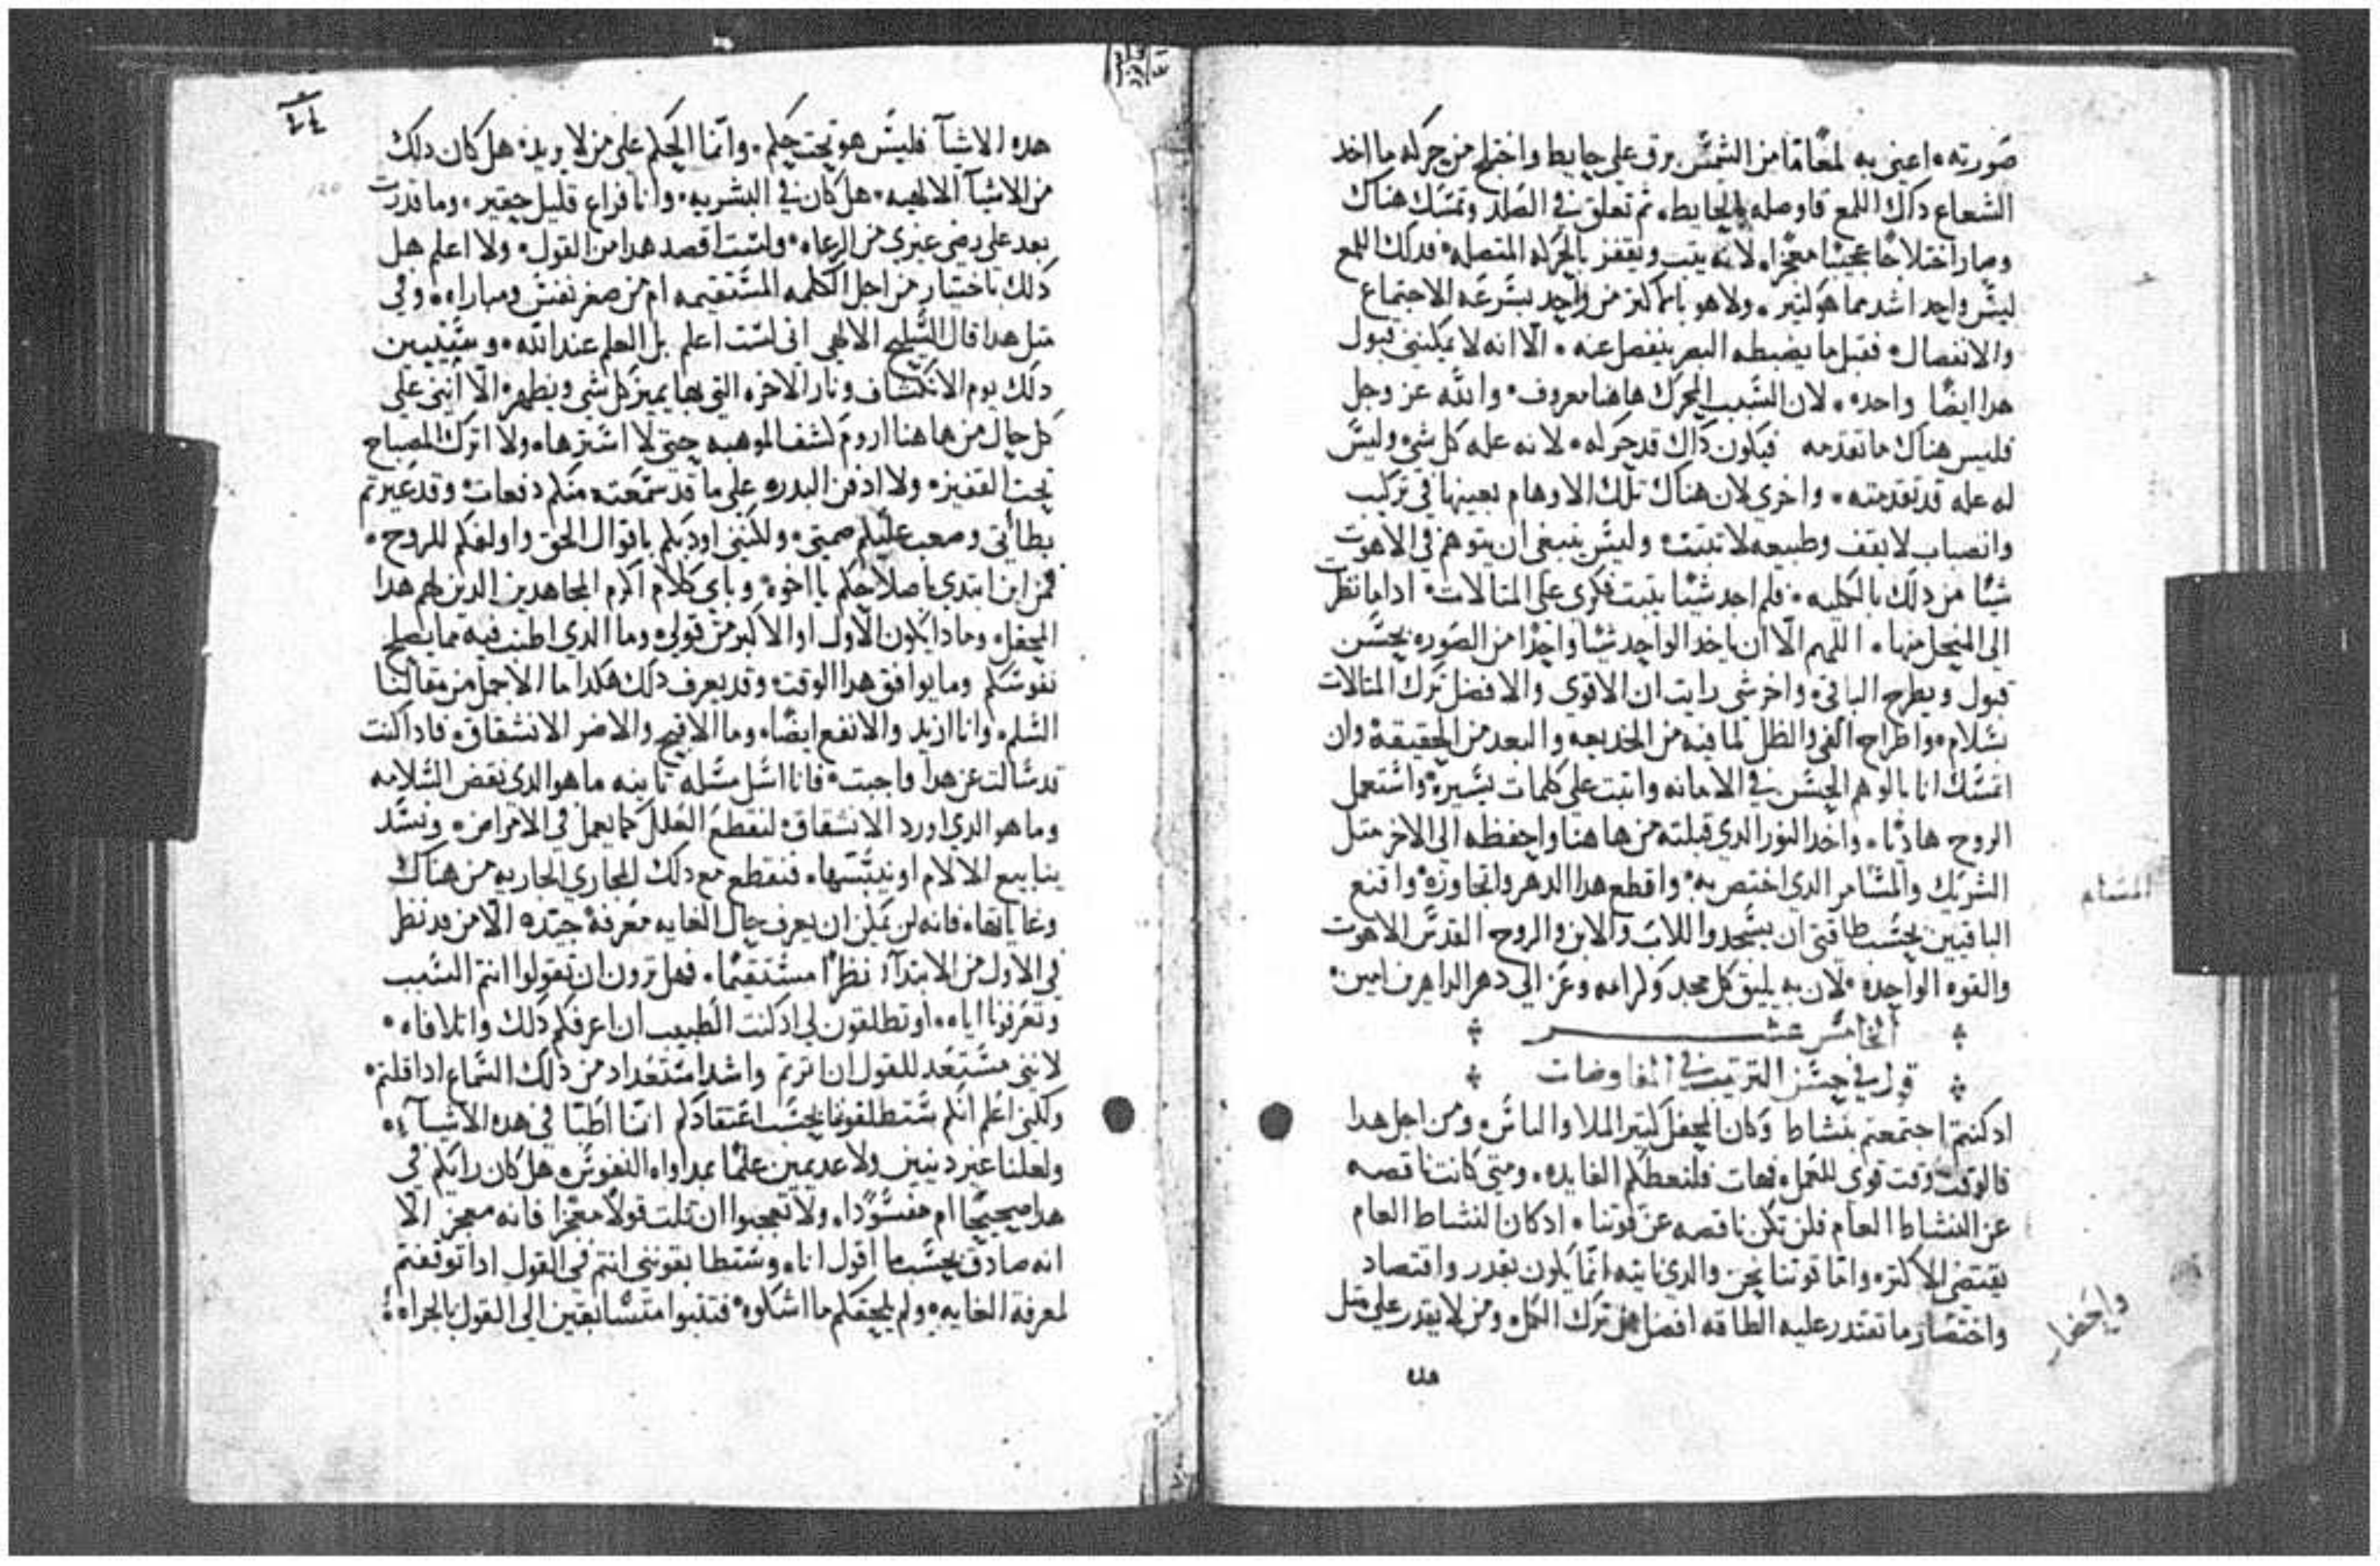 صورته اعني به لمعاما من الشمس برق علي حايط واختلج من حركه ما اخد
الشعاع داك اللمع فاوصله بالحايط ثم تعلق في الصلد وتمسك هناك
وصار اختلاجا عجيبا معجزا لانه يتب ويقفز بالحركه المتصله فدلك اللمع
ليس واحد اشد مما هو كتير ولا هو باكتر من واحد بسرعه الاجتماع
والانفصال فقبل ما يضبطه البصر ينفصل عنه الا انه لا يمكنني قبول
هدا ايضا واحده لان السبب المحرك هاهنا معروف والله عز وجل
فليس هناك ما تقدمه فيكون داك قد حركه لانه عله كل شي وليس
له عله قد تقدمته واخري لان هناك تلك الاوهام بعينها في تركيب
وانصباب لا يقف وطبيعه لا تتبت وليس ينبغي ان يتوهم في الاهوت
شيا من دلك بالكليه فلم اجد شيا يتبت فكري علي المتالات ادا ما نظر
الي المنحل منها اللهم الا ان ياخد الواحد شيا واحدا من الصوره بحسن
قبول ويطرح الباقي واخر شي رايت ان الاقوي والافضل ترك المتالات
بسلام واطراح الفي والظل لما فيه من الخديعه والبعد من الحقيقه وان
اتمسك انا بالوهم الحسن في الامانه واتبت علي كلمات يسيره واستعمل
الروح هاديا واخد النور الدي قبلته من هاهنا واحفظه الي الاخر متل
الشريك والمسامر الدي اختص به واقطع هدا الدهر واتجاوزه واقنع
الباقيين بحسب طاقتي ان يسجدوا للاب والابن والروح القدس الاهوت
والقوه الواحده لان به يليق كل مجد وكرامه وعز الي دهر الداهرين امين
الخامس عشر
قول في حسن الترتيب في المفاوضات
اد كنتم اجتمعتم بنشاط وكان المحفل كتير الملا والناس ومن اجل هدا
فالوقت وقت قوي للعمل فهات فلنعطكم الفايده ومتي كانت ناقصه
عن النشاط العام فلن تكن ناقصه عن قوتنا اد كان النشاط العام
يقتضي الاكتر واما قوتنا نحن والدي ناتيه انما يكون بقدر واقتصاد
واختصار وما تقتدر عليه الطاقه افضل من ترك الكل ومن لا يقدر علي متل
هده
المسام
واحضار
هده الاشيآ فليس هو تحت حكم وانما الحكم علي من لا يريد هل كان دلك
من الاشيآ الالهيه هل كان في البشريه وانا فراع قليل حقير وما قدرت
بعد علي رضي عيري من الرعاه ولست اقصد هدا من القول ولا اعلم هل
دلك باختيار من اجل الكلمه المستقيمه ام من صغر نفس ومباراه وفي
متل هدا قال السليح الالهي اني لست اعلم بل العلم عند الله وسيبين
دلك يوم الانكشاف ونار الاخره التي بها يميز كل شي ويطهر الا انني علي
كل حال من هاهنا اروم كشف الموهبه حتي لا استرها ولا اترك المصباح
تحت القفيز ولا ادفن البدره علي ما قد سمعته منكم دفعات وقد عيرتم
بطااتي وصعب عليكم صمتي ولكنني اودبكم باقوال الحق واولفكم للروح
فمن اين ابتدي باصلاحكم يا اخوه وباي كلام اكرم المجاهدين الدين لهم هدا
المحفل ومادا يكون الاول او الاكبر من قولي وما الدي اطنب فيه مما يصلح
نفوسكم وما يوافق هدا الوقت وقد يعرف دلك هكدا ما الاجمل من مقالتنا
السلم وانا ازيد والانفع ايضا وما الاقبح والاضر الانشقاق فادا كنت
قد سالت عن هدا واجبت فانا اسل مسله تانيه ما هو الدي نقض السلامه
وما هو الدي اورد الانشقاق لنقطع العلل كما يعمل في الامراض ونسد
ينابيع الالام او نيبسها فنقطع مع دلك المجاري الجاريه من هناك
وغاياتها فانه لن يمكن ان يعرف حال الغايه معرفه جيده الا من قد نظر
في الاول من الابتدآ نظرا مستقيما فهل ترون ان تقولوا انتم السبب
وتعرفونا اياه او تطلقون لي اد كنت الطبيب ان اعرفكم دلك واتلافاه
لانني مستعد للقول ان اترتم واشد استعداد من دلك السماع ادا قلتم
ولكني اعلم انكم ستطلقونا بحسب اعتقادكم اننا اطبا في هده الاشيآ
ولعلنا غير دنيين ولا عديمين علما بمداواه النفوس هل كان رايكم في
هدا صحيحا ام مفسودا ولا تعجبوا ان قلت قولا معجزا فانه معجز الا
انه صادق بحسب ما اقول انا وستطابقونني انتم في القول ادا توقفتم
لمعرفه الغايه ولم يلحقكم ما اشكوه فتتبوا متسابقين الي القول بالجراه